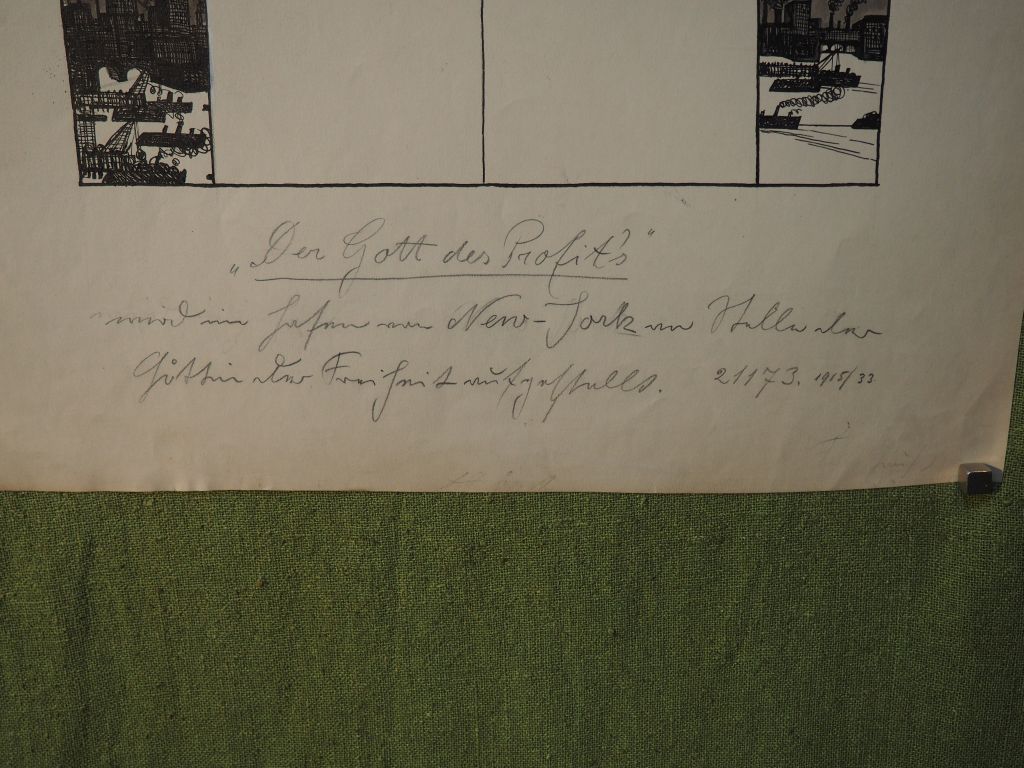 „Der Gott des Profit's“
wird im Hafen von New-York an Stelle der
Göttin der Freiheit aufgestellt. 21173. 1915/33